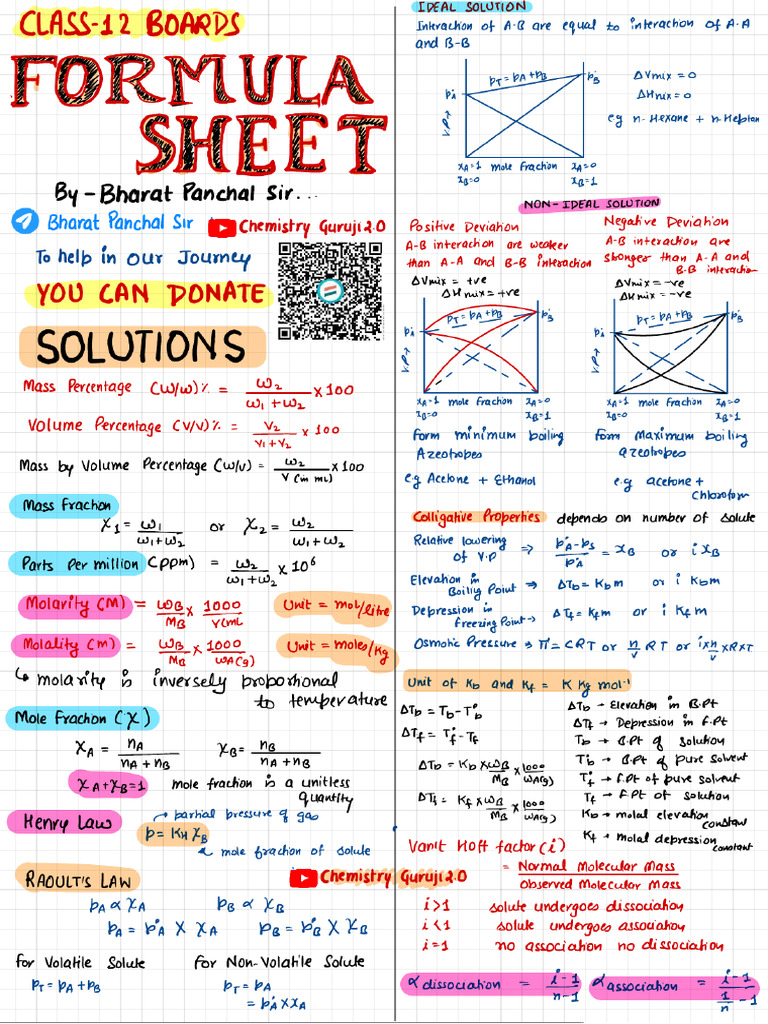 CLASS-12 BOARDS
FORMULA
SHEET
By - Bharat Panchal Sir...
Bharat Panchal Sir
Chemistry Guruji 2.0
To help in our Journey
YOU CAN DONATE
SOLUTIONS
Mass Percentage (w/w)% = w₂/(w₁+w₂) × 100
Volume Percentage (v/v)% = v₂/(v₁+v₂) × 100
Mass by Volume Percentage (w/v) = w₂/V(in mL) × 100
Mass fraction
χ₁ = w₁/(w₁+w₂) or χ₂ = w₂/(w₁+w₂)
Parts Per million (ppm) = w₂/(w₁+w₂) × 10⁶
Molarity (M) = w_B/M_B × 1000/V(mL) Unit = mol/litre
Molality (m) = w_B/M_B × 1000/w_A(g) Unit = moles/kg
↳ molarity is inversely proportional
to temperature
Mole Fraction (χ)
χ_A = n_A/(n_A+n_B) χ_B = n_B/(n_A+n_B)
χ_A+χ_B=1 mole fraction is a unitless
quantity
Henry Law
→ partial pressure of gas
p = K_H χ_B
→ mole fraction of solute
RAOULT'S LAW
Chemistry Guruji 2.0
p_A ∝ χ_A p_B ∝ χ_B
p_A = p°_A × χ_A p_B = p°_B × χ_B
for Volatile Solute for Non-Volatile Solute
p_T = p_A + p_B p_T = p_A
= p°_A × χ_A
IDEAL SOLUTION
Interaction of A-B are equal to interaction of A-A
and B-B
p_T = p_A + p_B
p°_A
p°_B
V.P→
x_A=1 mole fraction x_A=0
x_B=0 x_B=1
ΔVmix = 0
ΔHmix = 0
eg n-Hexane + n-Heptan
NON-IDEAL SOLUTION
Positive Deviation
A-B interaction are weaker
than A-A and B-B interaction
ΔVmix = +ve
ΔHmix = +ve
p_T = p_A + p_B
p°_A
p°_B
V.P→
x_A=1 mole fraction x_A=0
x_B=0 x_B=1
form minimum boiling
Azeotropes
e.g Acetone + Ethanol
Negative Deviation
A-B interaction are
stronger than A-A and
B-B interaction
ΔVmix = -ve
ΔHmix = -ve
p_T = p_A + p_B
p°_A
p°_B
V.P→
x_A=1 mole fraction x_A=0
x_B=0 x_B=1
form Maximum boiling
azeotropes
e.g acetone +
Chloroform
Colligative Properties depends on number of solute
Relative lowering
of V.P ⇒ (p°_A - p_S)/p°_A = x_B or i x_B
Elevation in
Boiling Point → ΔT_b = K_b m or i K_b m
Depression in
freezing Point → ΔT_f = K_f m or i K_f m
Osmotic Pressure → π = CRT or n/v RT or i×n/v × R×T
Unit of K_b and K_f = K Kg mol⁻¹
ΔT_b = T_b - T°_b
ΔT_f = T°_f - T_f
ΔT_b = K_b × w_B/M_B × 1000/w_A(g)
ΔT_f = K_f × w_B/M_B × 1000/w_A(g)
ΔT_b → Elevation in B.Pt
ΔT_f → Depression in F.Pt
T_b → B.Pt of solution
T°_b → B.Pt of pure solvent
T°_f → F.Pt of pure solvent
T_f → F.Pt of solution
K_b → molal elevation
constant
K_f → molal depression
constant
Vanit Hoff factor (i)
= Normal Molecular Mass
Observed Molecular Mass
i>1 solute undergoes dissociation
i<1 solute undergoes association
i=1 no association no dissociation
α dissociation = (i-1)/(n-1) α association = (i-1)/(1/n - 1)